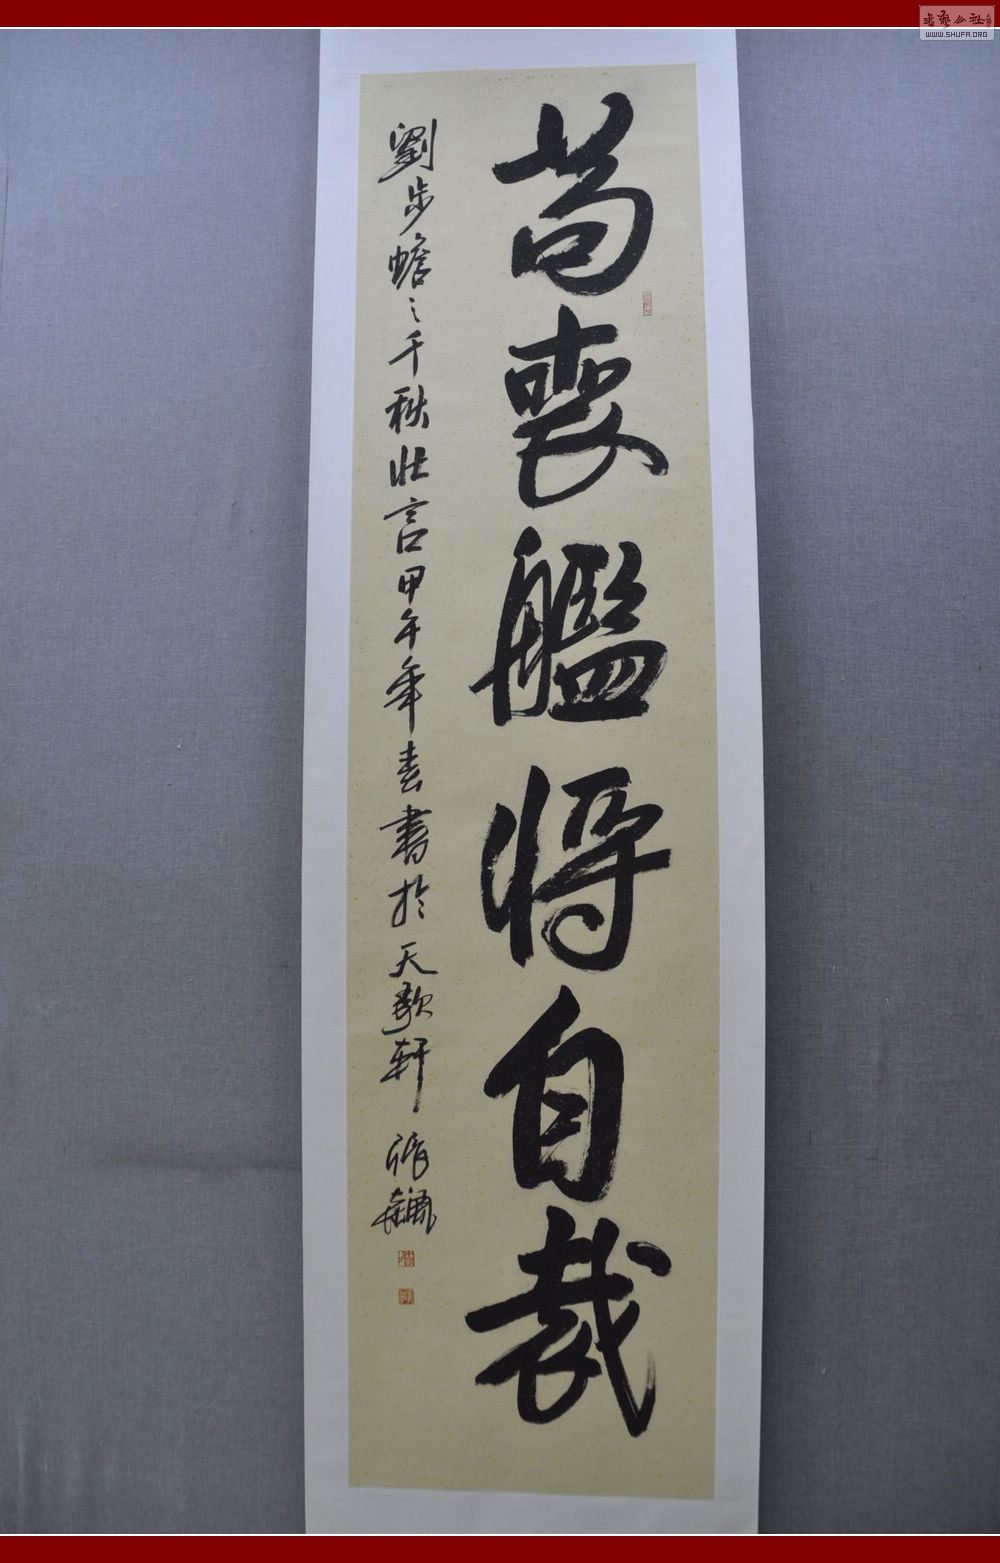 苟喪艦將自裁
劉步蟾之千秋壯言甲午年春書於天歌軒張
書藝公社
WWW.SHUFA.ORG